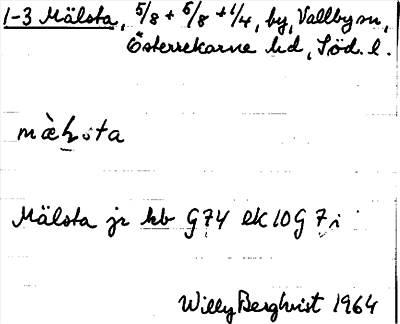 1-3 Mälsta, 5/8 + 5/8 + 1/4, by, Vallby sn,
Österrekarne hd, Söd. l.
Mälsta jr kb G74 ek 10G 7i
Willy Bergkvist 1964